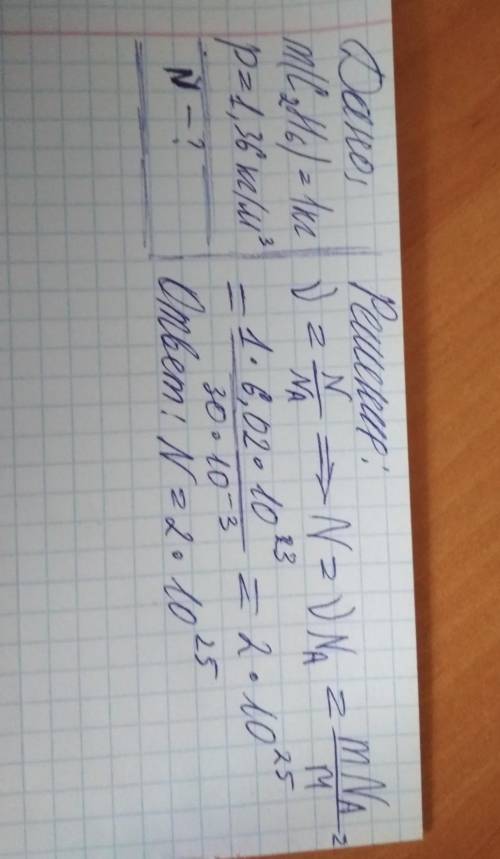 Дано:
m(C₂H₆) = 1 кг
ρ = 1,36 кг/м³
N - ?
Решение:
ν = N/Nₐ ⟹ N = νNₐ = mNₐ/M =
= 1·6,02·10²³/30·10⁻³ = 2·10²⁵
Ответ: N = 2·10²⁵